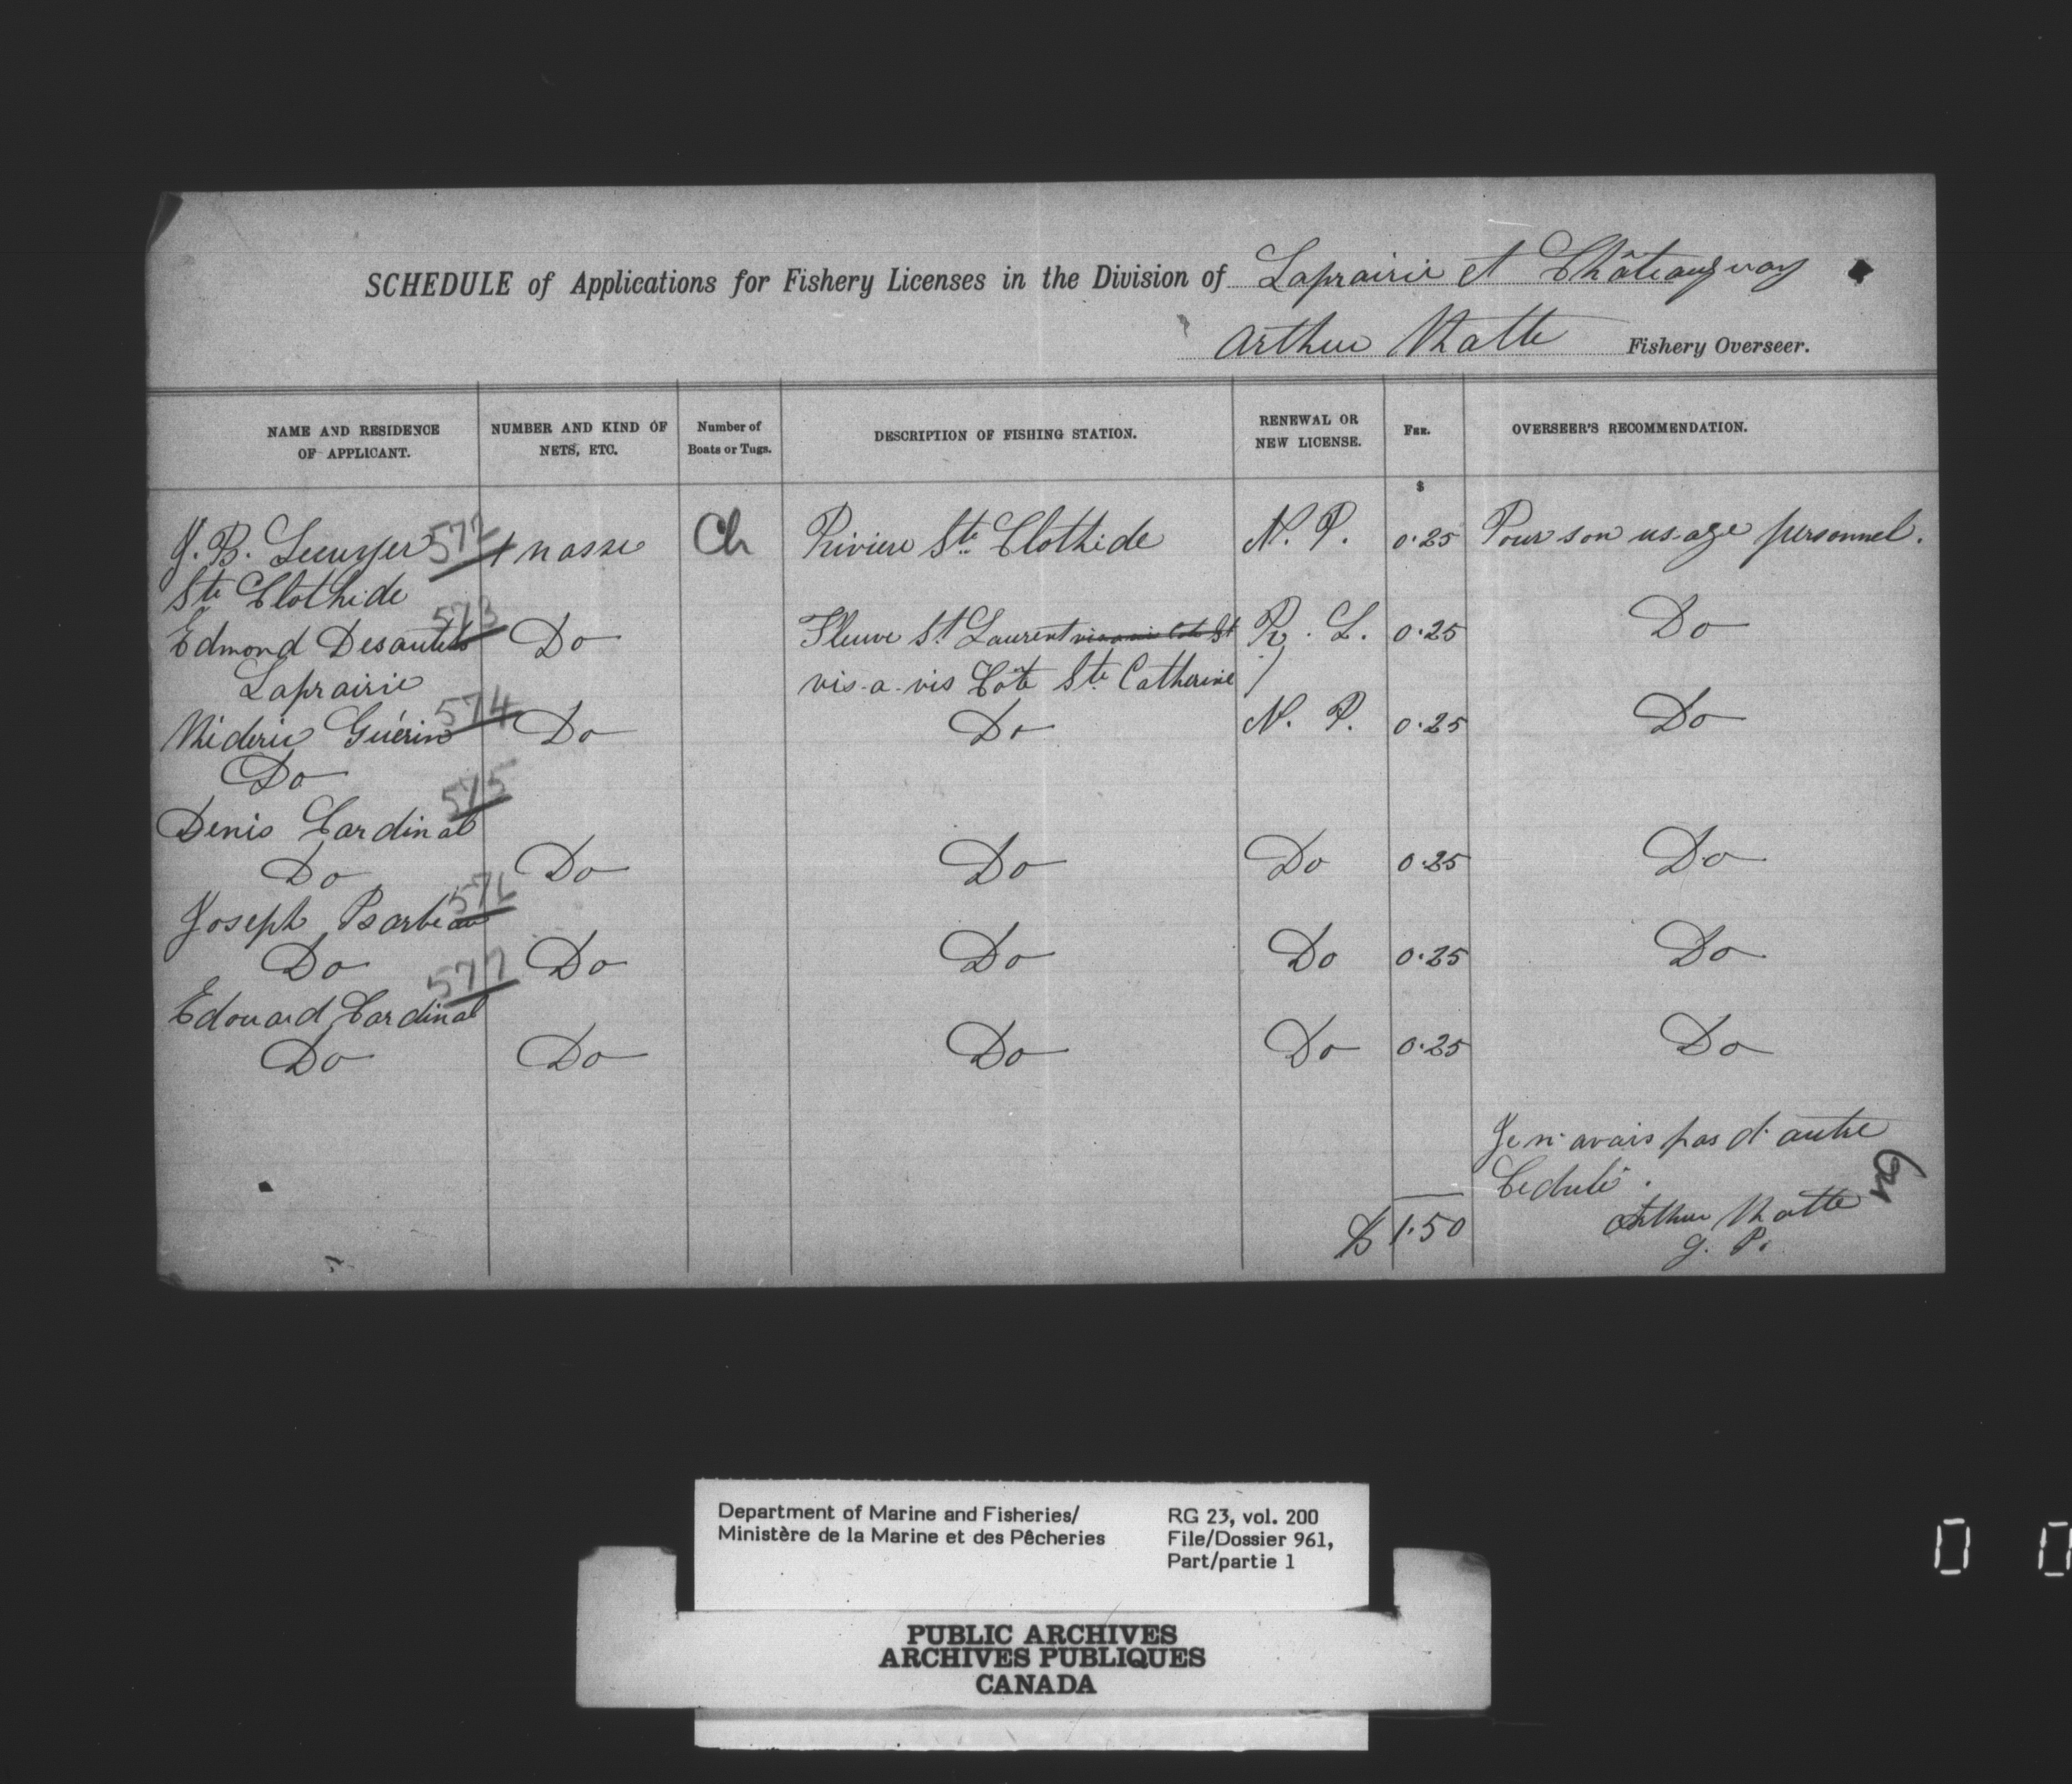 SCHEDULE of Applications for Fishery Licenses in the Division of Laprairie et Châteauguay
Arthur Matte Fishery Overseer.
NAME AND RESIDENCE OF APPLICANT. NUMBER AND KIND OF NETS, ETC. Number of Boats or Tugs. DESCRIPTION OF FISHING STATION. RENEWAL OR NEW LICENSE. FEE. OVERSEER'S RECOMMENDATION.
$
J. B. Lecuyer 572 1 nasse Ch Riviere Ste Clothide N. P. 0.25 Pour son usage personnel.
Ste Clothide
Edmond Desautels 573 Do Fleuve St Laurent R. L. 0.25 Do
Laprairie vis-a-vis Côte Ste Catherine
Méderic Guérin 574 Do Do N. P. 0.25 Do
Do
Denis Cardinal 575
Do Do Do Do 0.25 Do
Joseph Barbeau 576
Do Do Do Do 0.25 Do
Edouard Cardinal 577
Do Do Do Do 0.25 Do
Je n'avais pas d'autre
Cedule.
$ 1.50 Arthur Matte
g. P.
Department of Marine and Fisheries/ RG 23, vol. 200
Ministère de la Marine et des Pêcheries File/Dossier 961,
Part/partie 1
PUBLIC ARCHIVES
ARCHIVES PUBLIQUES
CANADA
0 0